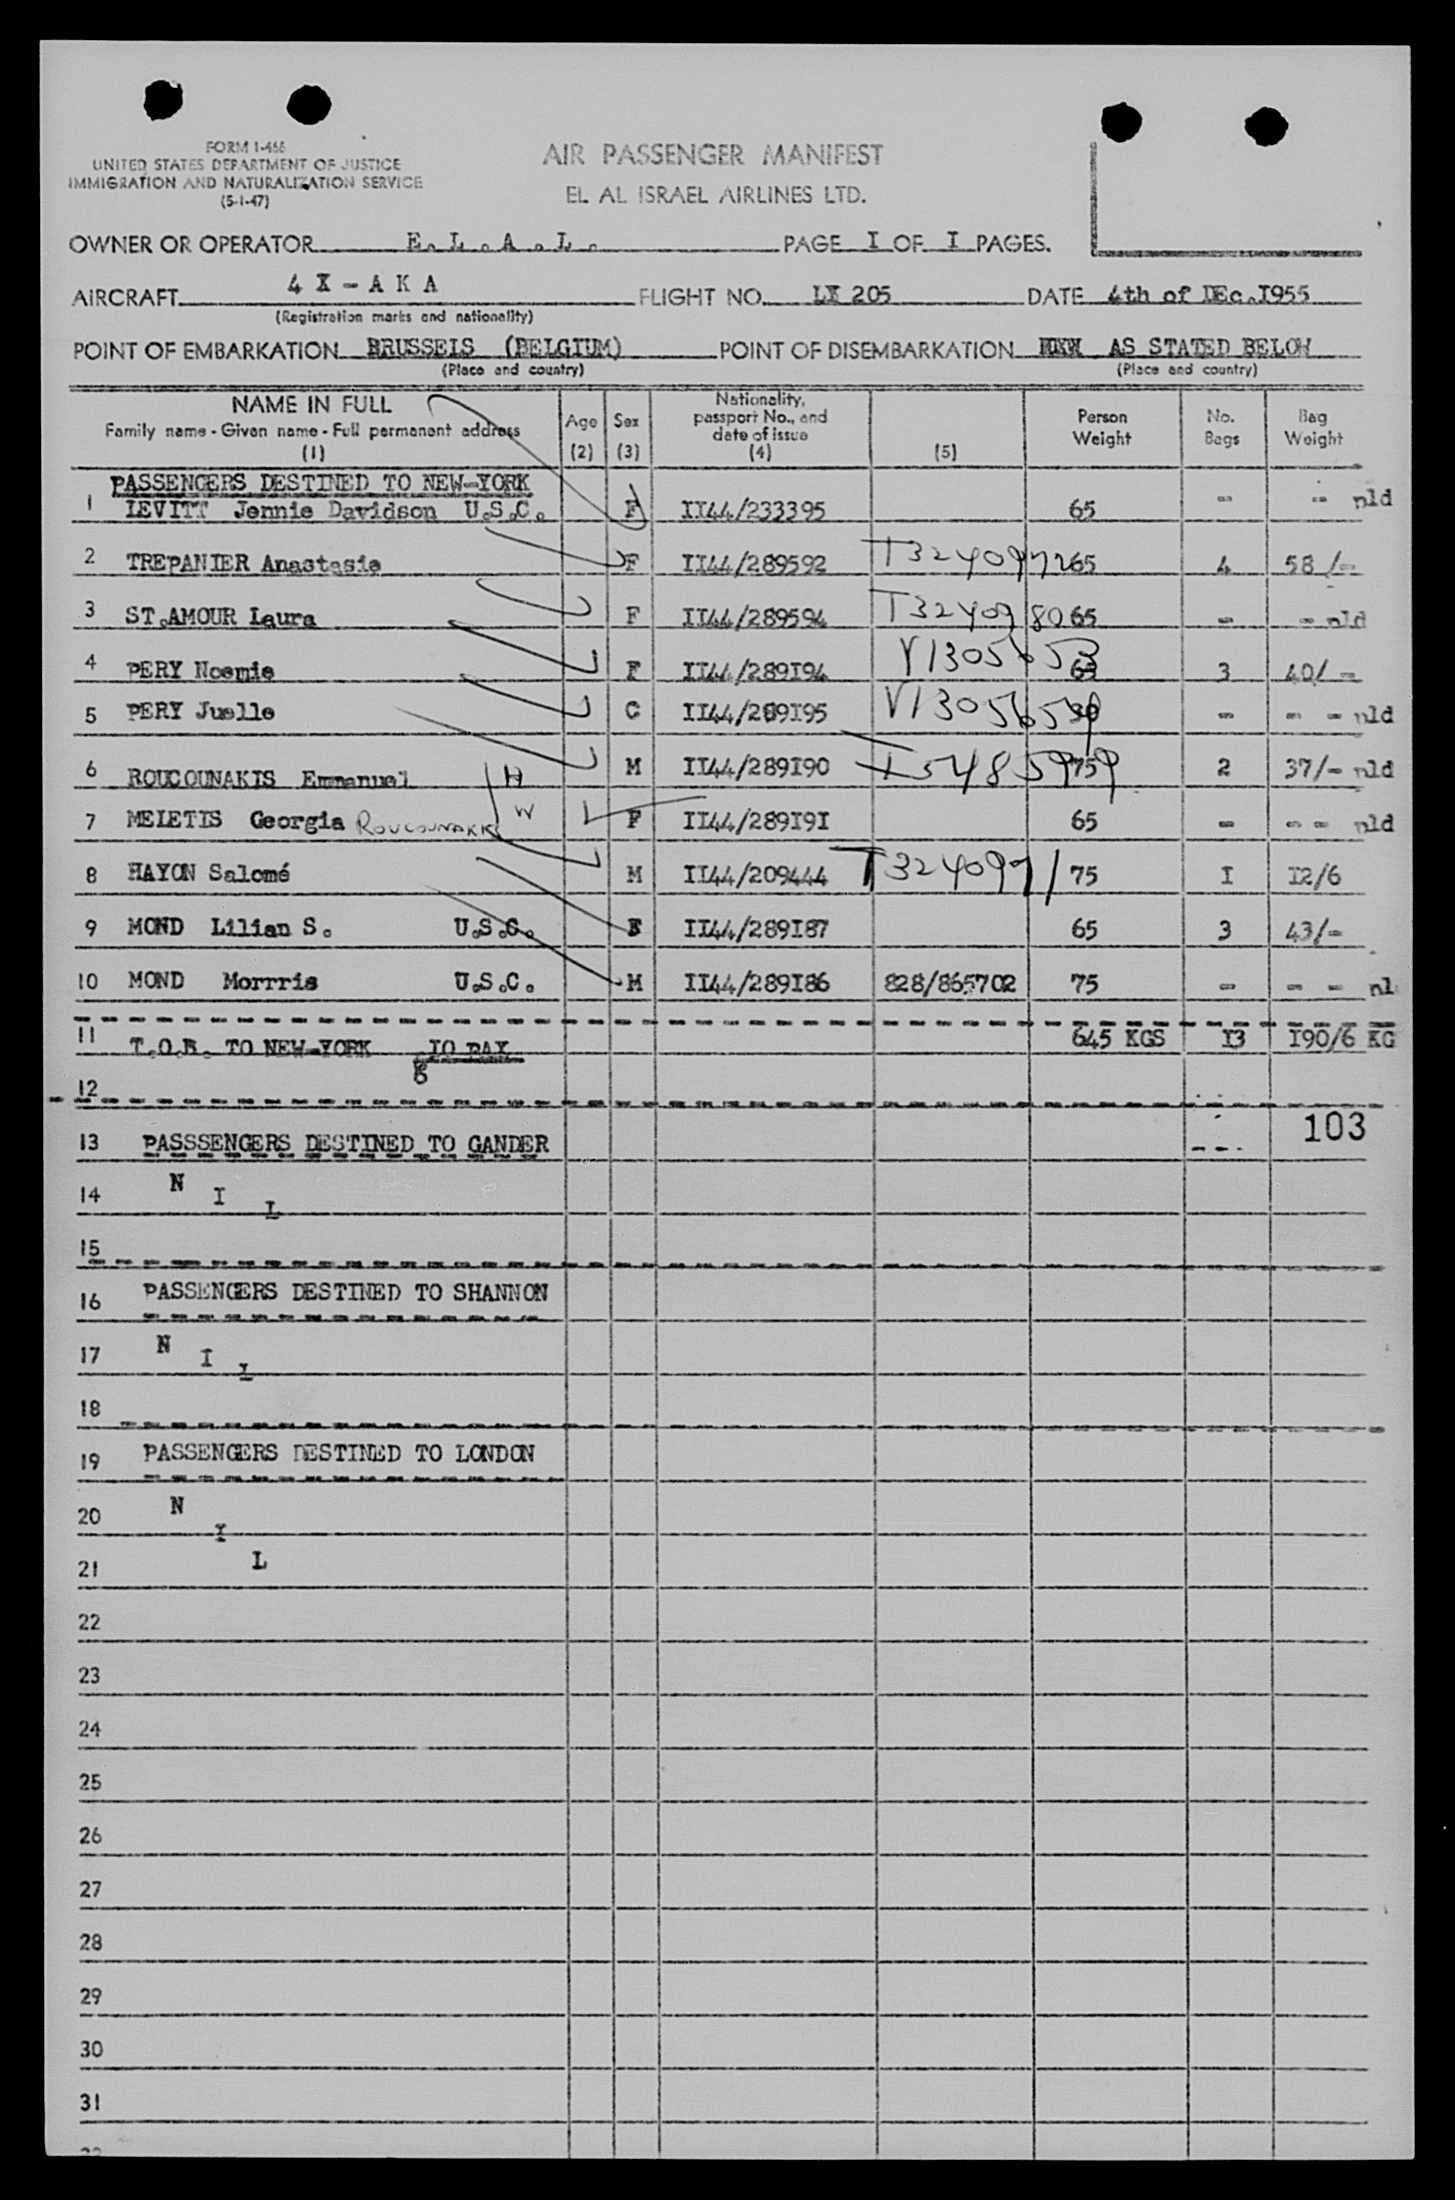 FORM I-466
UNITED STATES DEPARTMENT OF JUSTICE
IMMIGRATION AND NATURALIZATION SERVICE
(5-1-47)
AIR PASSENGER MANIFEST
EL AL ISRAEL AIRLINES LTD.
OWNER OR OPERATOR E. L. A. L. PAGE I OF I PAGES.
AIRCRAFT 4 X - A K A FLIGHT NO. LY 205 DATE 4th of DEc.I955
(Registration marks and nationality)
POINT OF EMBARKATION BRUSSELS (BELGIUM) POINT OF DISEMBARKATION AS STATED BELOW
(Place and country) (Place and country)
NAME IN FULL Age Sex Nationality, passport No., and date of issue Person Weight No. Bags Bag Weight
Family name - Given name - Full permanent address
(1) (2) (3) (4) (5)
PASSENGERS DESTINED TO NEW-YORK
1 LEVITT Jennie Davidson U.S.C. F II44/233395 65 - - pld
2 TREPANIER Anastasie F II44/289592 T3240972 65 4 58 /-
3 ST.AMOUR Laura F II44/289594 T3240980 65 - - pld
4 PERY Noemie F II44/289I94 V1305653 65 3 40/ -
5 PERY Juelle C II44/289I95 V1305654 30 - - - pld
6 ROUCOUNAKIS Emmanuel H M II44/289I90 T5485999 75 2 37/- pld
7 MELETIS Georgia ROUCOUNAKIS W F II44/289I9I 65 - - - pld
8 HAYON Salomé M II44/209444 T3240971 75 I I2/6
9 MOND Lilian S. U.S.C. F II44/289I87 65 3 43/-
10 MOND Morrris U.S.C. M II44/289I86 828/865702 75 - - - pl
11 T.O.B. TO NEW-YORK IO PAX 645 KGS I3 I90/6 KG
8
12
103
13 PASSSENGERS DESTINED TO GANDER ---
14 N I L
15
16 PASSENGERS DESTINED TO SHANNON
17 N I L
18
19 PASSENGERS DESTINED TO LONDON
20 N I
21 L
22
23
24
25
26
27
28
29
30
31